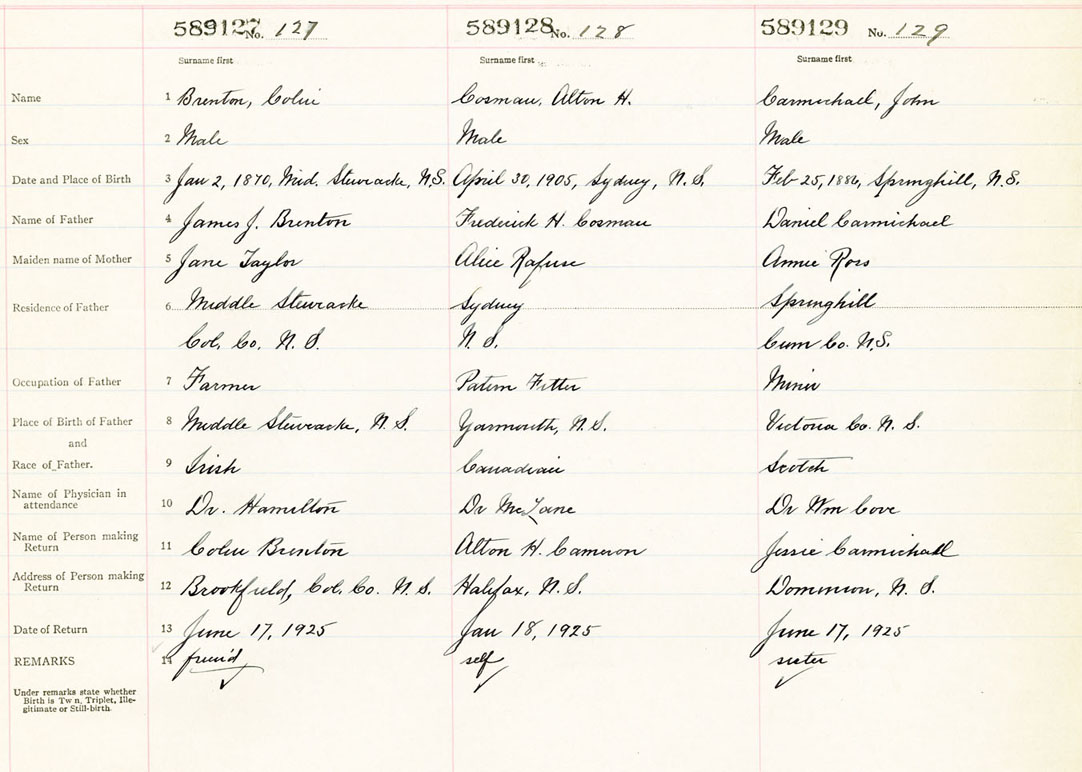 589127 No. 127 589128 No. 128 589129 No. 129
Surname first Surname first Surname first
Name 1 Brenton, Colin Cosman, Alton H. Carmichael, John
Sex 2 Male Male Male
Date and Place of Birth 3 Jan 2, 1870, Mid. Stewiacke, N.S. April 30, 1905, Sydney, N.S. Feb 25, 1886, Springhill, N.S.
Name of Father 4 James J. Brenton Frederick H. Cosman Daniel Carmichael
Maiden name of Mother 5 Jane Taylor Alice Rafuse Annie Ross
Residence of Father 6 Middle Stewiacke Sydney Springhill
Col. Co. N.S. N.S. Cum Co. N.S.
Occupation of Father 7 Farmer Fitter Miner
Place of Birth of Father 8 Middle Stewiacke, N.S. Yarmouth, N.S. Victoria Co. N.S.
and
Race of Father. 9 Irish Canadian Scotch
Name of Physician in
attendance 10 Dr. Hamilton Dr McLane Dr Wm Cove
Name of Person making
Return 11 Colin Brenton Alton H. Cameron Jessie Carmichael
Address of Person making
Return 12 Brookfield, Col. Co. N.S. Halifax, N.S. Dominion, N.S.
Date of Return 13 June 17, 1925 Jan 18, 1925 June 17, 1925
REMARKS 14 friend self sister
Under remarks state whether
Birth is Tw n, Triplet, Ille-
gitimate or Still-birth